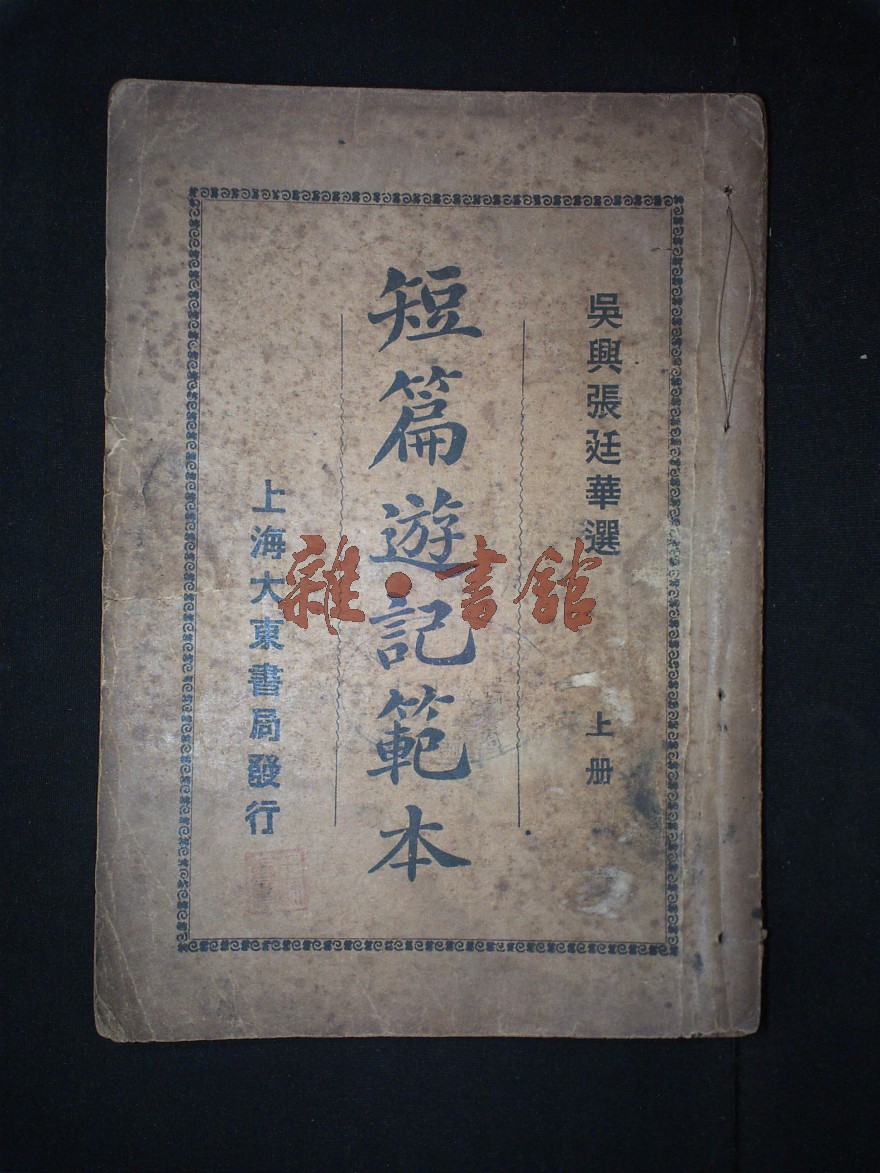 吳興張廷華選
上册
短篇遊記範本
上海大東書局發行
雜·書館